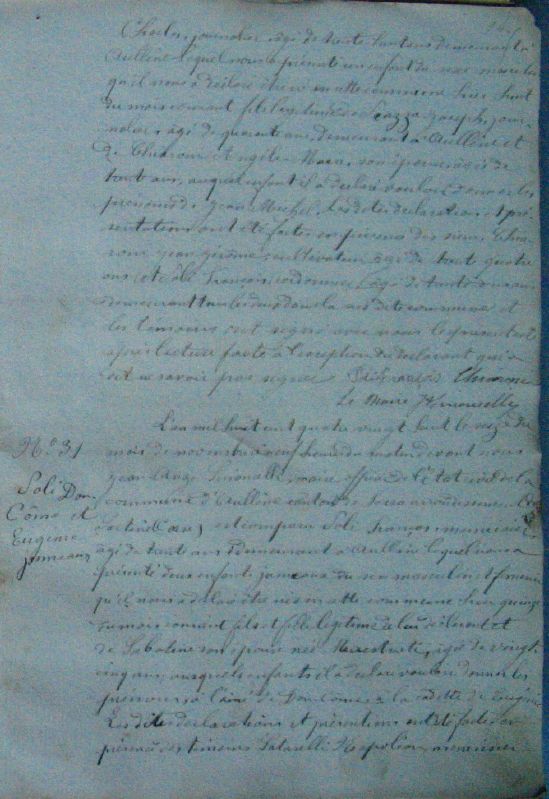 journalier âgé de trente huit ans demeurant à
Aullène lequel nous a présenté un enfant du sexe masculin
qu'il nous a déclaré être né en cette commune hier huit
du mois courant fils légitime de Joseph, jour
nalier âgé de quarante ans, demeurant à Aullène et
de Marie son épouse âgée de
trente ans, auquel enfant il a déclaré vouloir donner les
prénoms de Jean Michel. Les dites déclaration et pré
sentation ont été faites en présence des sieurs
Jean Jérôme cultivateur âgé de trente quatre
ans, et François cordonnier âgé de trente
demeurant tous les deux dans la susdite commune et
les témoins ont signé avec nous le présent acte
après lecture faite à l'exception du déclarant qui a
dit ne savoir pas signer
Le Maire
L'an mil huit cent quatre vingt huit le seize du
N° 31
mois de novembre à neuf heures du matin devant nous
Jean Ange Simonelli, maire officier de l'état civil de la
Soli Don
Côme et
Eugénie
jumeaux
commune d'Aullène canton de Serra arrondissement de
Sartène Corse, est comparu Soli François menuisier
âgé de trente ans demeurant à Aullène lequel nous a
présenté deux enfants jumeaux du sexe masculin et féminin
qu'il nous a déclaré être nés en cette commune hier quinze
du mois courant fils et fille légitime de lui déclarant et
de son épouse née âgée de vingt
cinq ans, auxquels enfants il a déclaré vouloir donner les
prénoms, à l'aîné de Don Come à la cadette de Eugénie
Les dites déclarations et présentations ont été faites en
présence des témoins Napoléon, menuisier